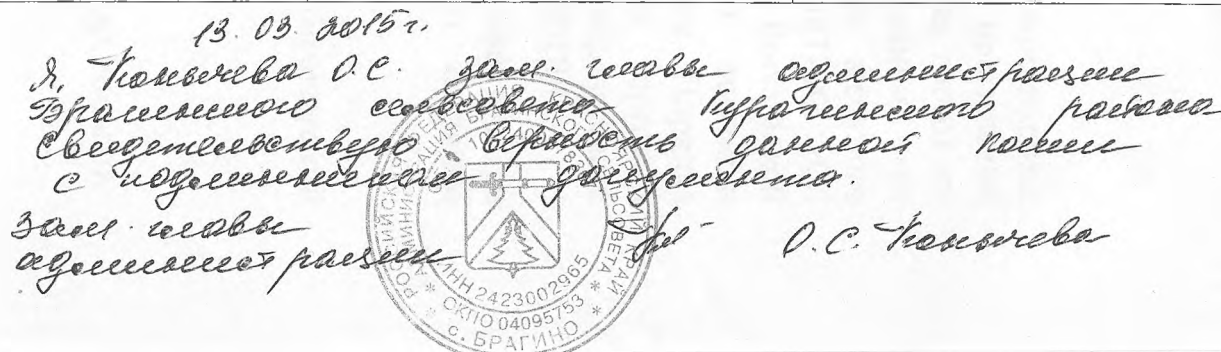 13. 03. 2015 г.
Я, Конычева О.С. зам. главы администрации
Брагинского сельсовета Курагинского района
свидетельствую верность данной копии
с подлинником документа.
Зам. главы
администрации О.С. Конычева
РОССИЙСКАЯ ФЕДЕРАЦИЯ КРАСНОЯРСКИЙ КРАЙ
АДМИНИСТРАЦИЯ БРАГИНСКОГО СЕЛЬСОВЕТА
ИНН 2423002965
ОКПО 04095753
с. БРАГИНО